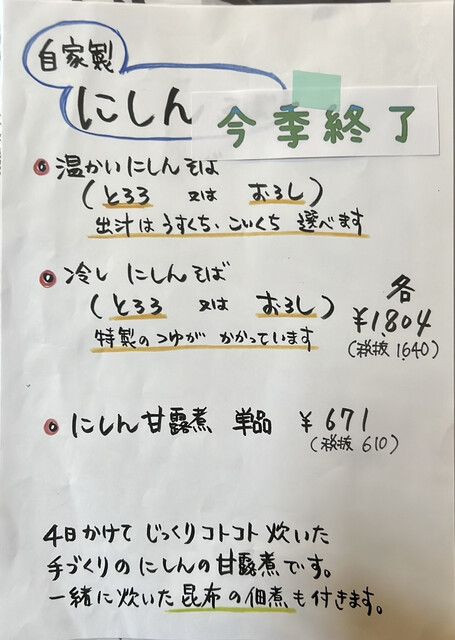 自家製
にしん
今季終了
温かいにしんそば
(とろろ 又は おろし)
出汁はうすくち、こいくち 選べます
冷し にしんそば
(とろろ 又は おろし)
特製のつゆが かかっています
各
¥1,804
(税抜 1,640)
にしん甘露煮 単品 ¥671
(税抜 610)
4日かけて じっくりコトコト 炊いた
手づくりの にしんの甘露煮です。
一緒に炊いた 昆布の佃煮も付きます。